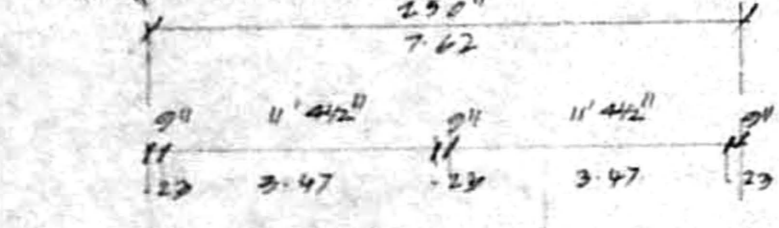 7.62
9" 11' 4½" 9" 11' 4½" 9"
.23 3.47 .23 3.47 .23